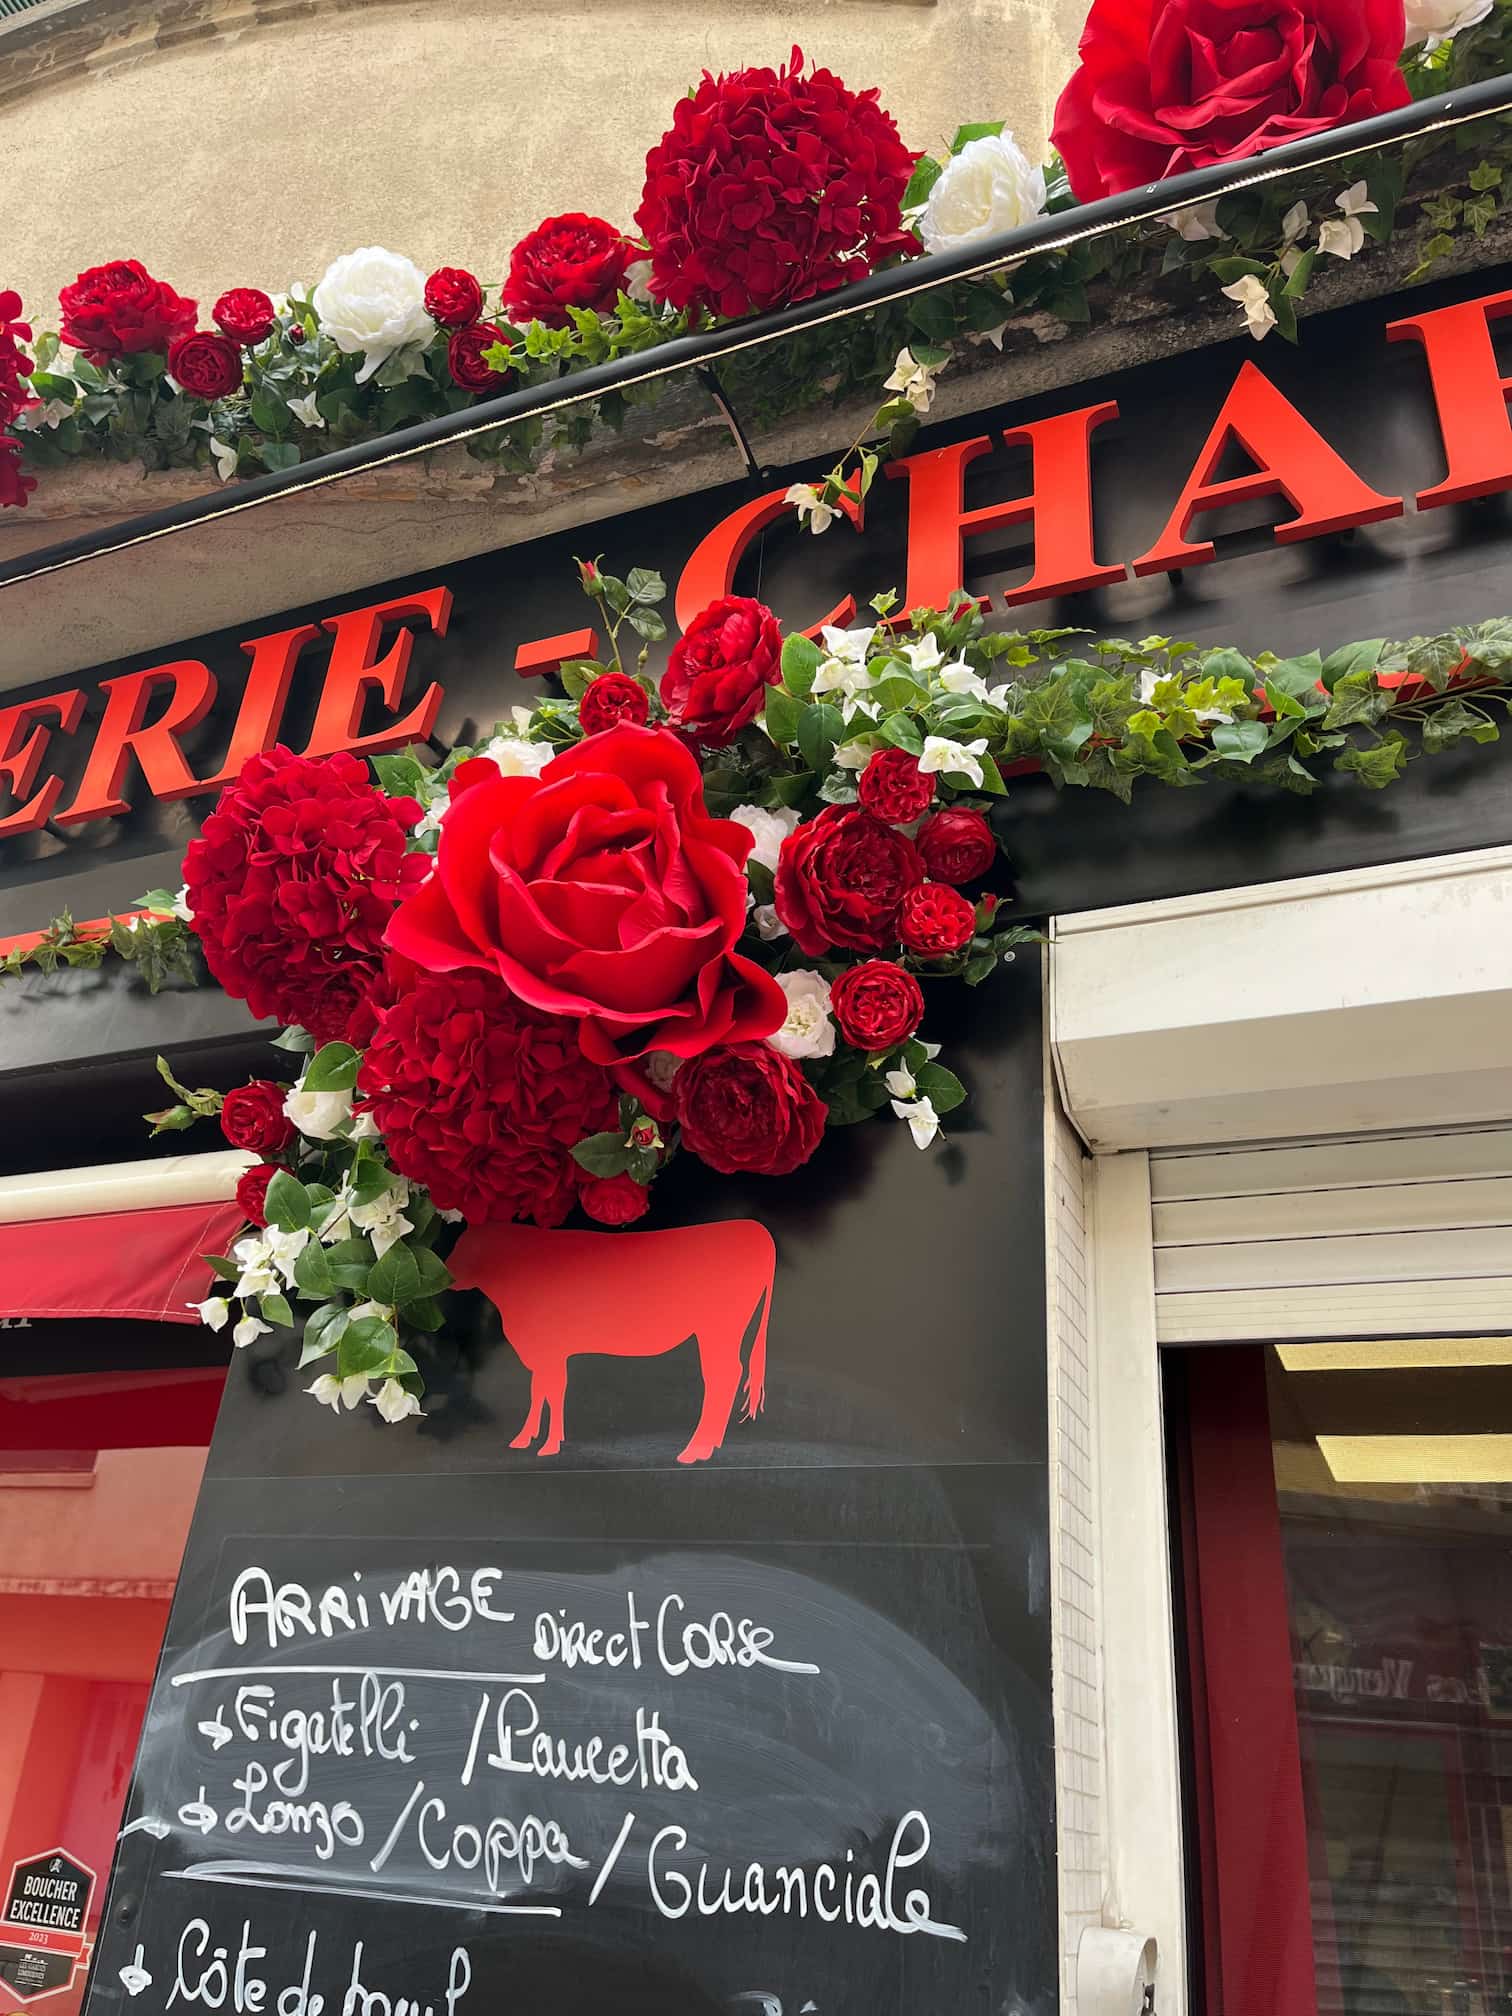 ERIE - CHAR
ARRIVAGE DIRECT CORSE
Figatelli / Paucetta
Lonzo / Coppa / Guanciale
Côte de boeuf
BOUCHER
EXCELLENCE
2023